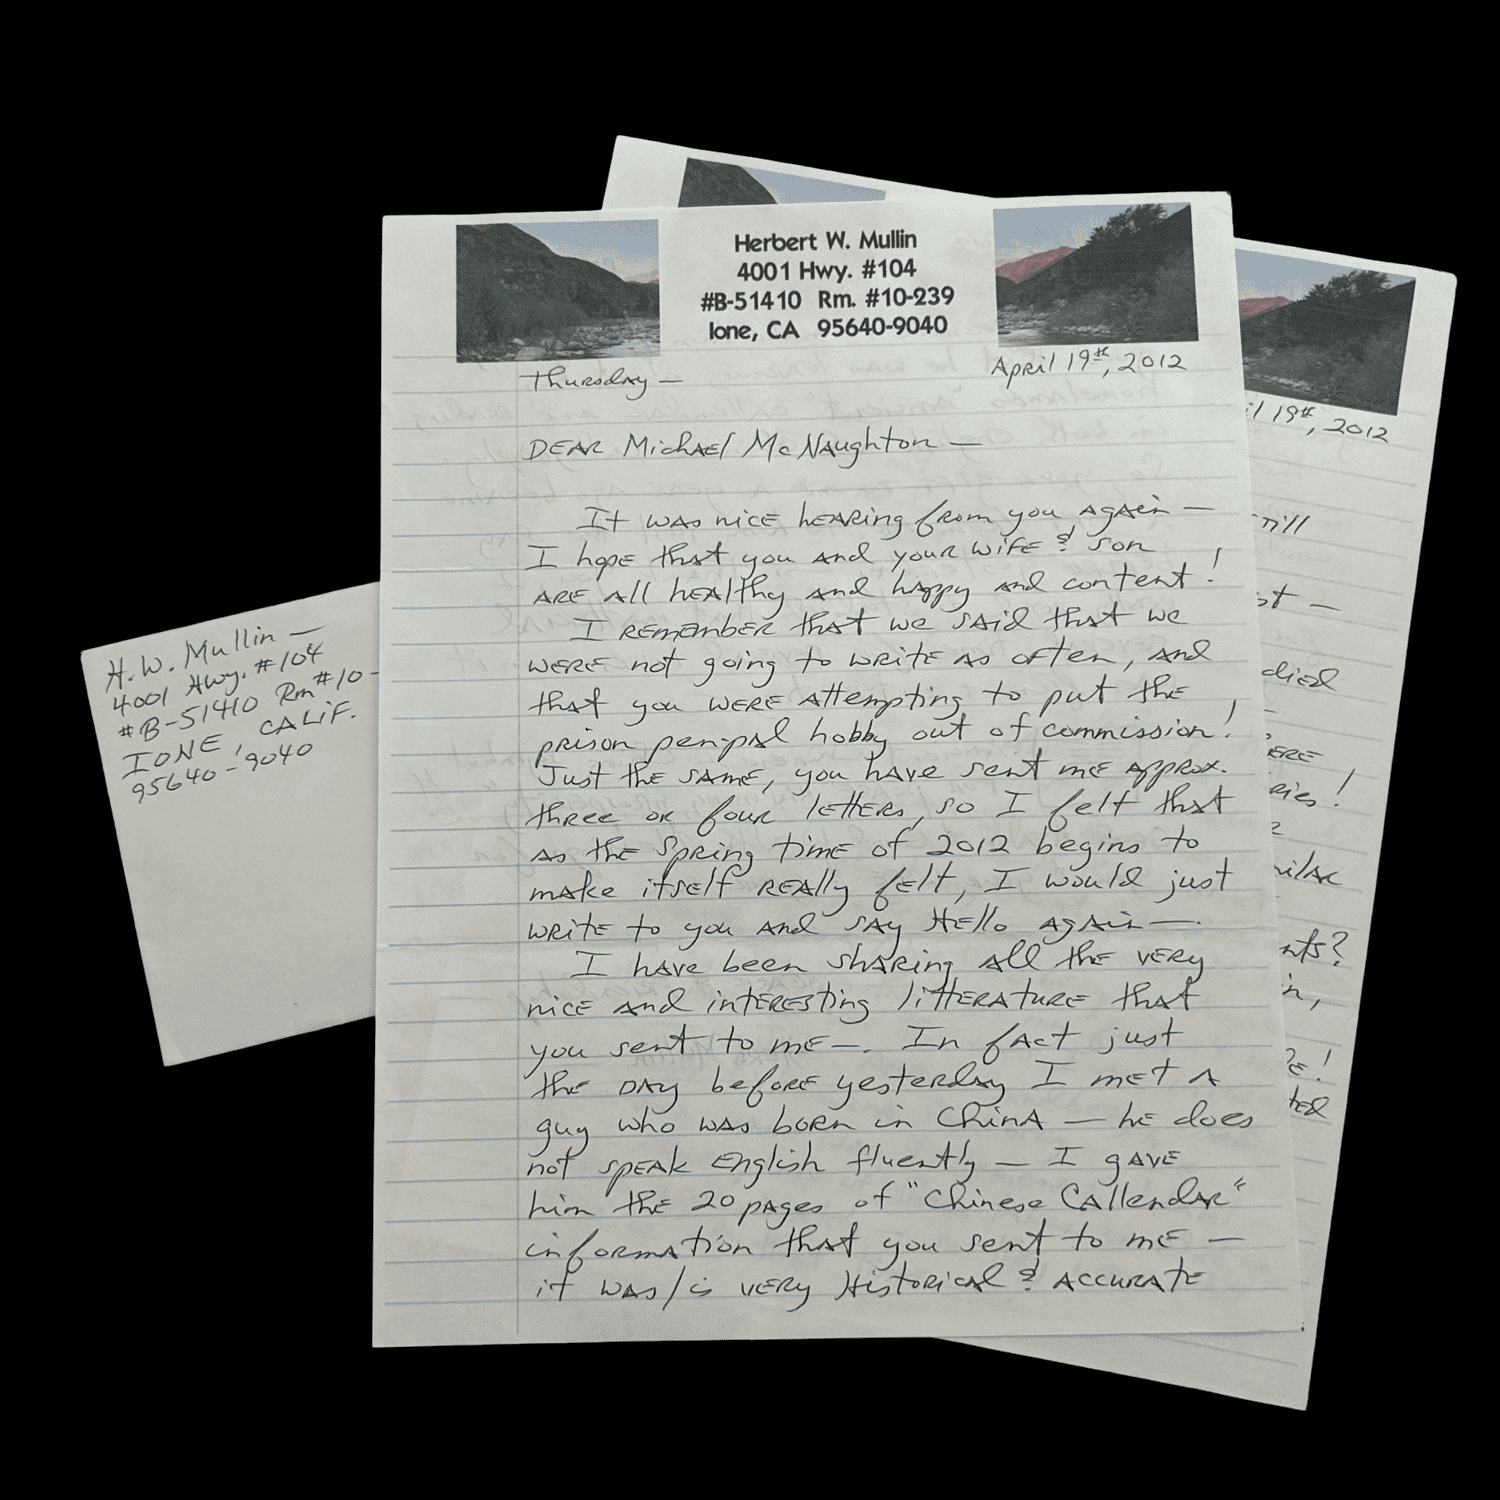 Herbert W. Mullin
4001 Hwy. #104
#B-51410 Rm. #10-239
Ione, CA 95640-9040
Thursday —
April 19th, 2012
DEAR Michael McNaughton —
It was nice hearing from you again —
I hope that you and your wife & son
are all healthy and happy and content!
I remember that we said that we
were not going to write as often, and
that you were attempting to put the
prison pen-pal hobby out of commission!
Just the same, you have sent me approx.
three or four letters, so I felt that
as the Spring time of 2012 begins to
make itself really felt, I would just
write to you and say Hello again —.
I have been sharing all the very
nice and interesting litterature that
you sent to me —. In fact just
the day before yesterday I met a
guy who was born in China — he does
not speak English fluently — I gave
him the 20 pages of "Chinese Callendar"
information that you sent to me —
it was/is very Historical & accurate
H.W. Mullin —
4001 Hwy. #104
#B-51410 Rm #10-
IONE, CALIF.
95640-9040
il 19th, 2012
till
st —
died
ERE
ries!
milar
nts?
in,
re!
ted